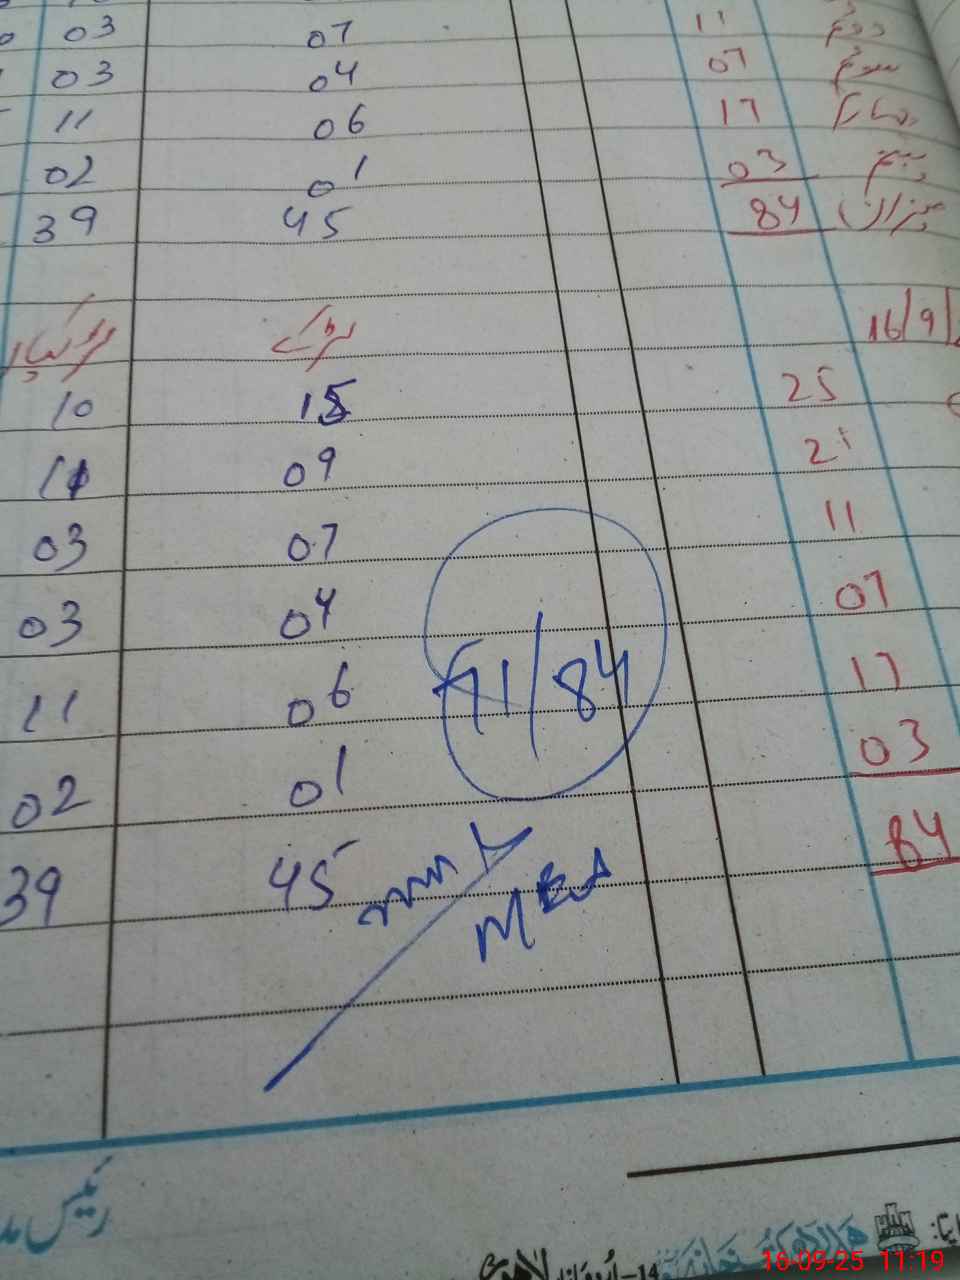 03 07 11 دوم
03 04 07 سوم
11 06 17 چہارم
02 01 03 پنجم
39 45 84 میزان
لڑکیاں لڑکے 16/9/
10 15 25
11 09 2
03 07 11
03 04 07
11 06 17
02 01 03
71/84
39 45 84
MEA
رئیس
لاہور
16-09-25 11:19